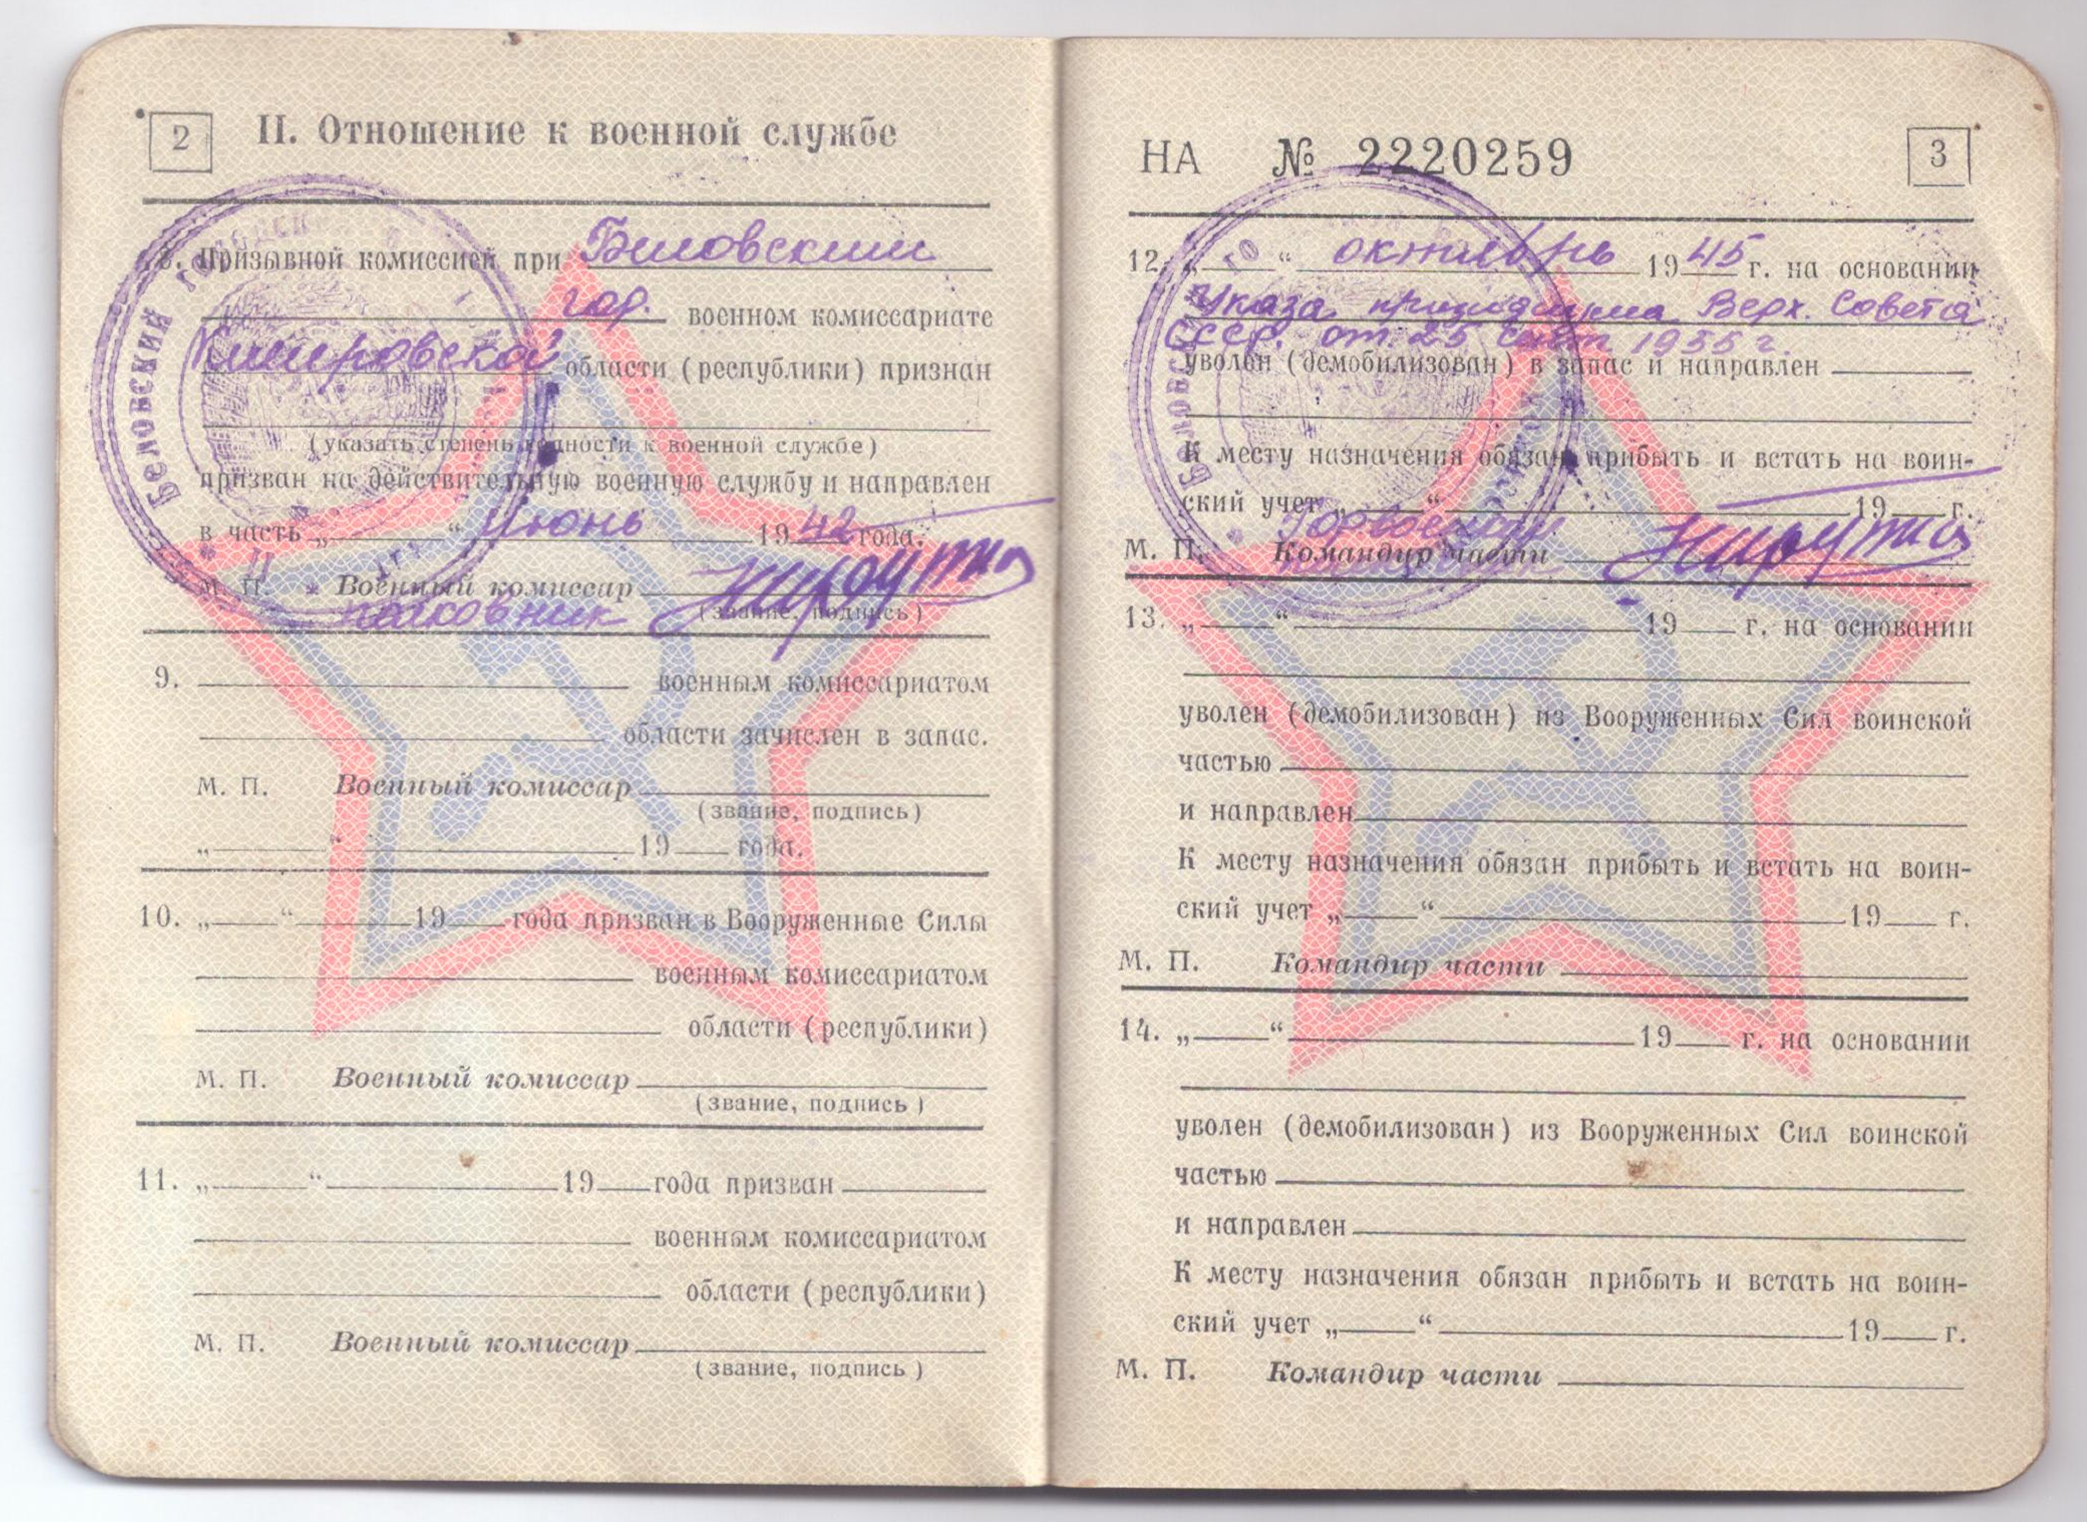 2
II. Отношение к военной службе
8. Призывной комиссией при Беловским
гор. военном комиссариате
Кемеровской области (республики) признан
(указать степень годности к военной службе)
призван на действительную военную службу и направлен
в часть „ “ Июнь 1942 года.
М. П. Военный комиссар
полковник (звание, подпись)
9. военным комиссариатом
области зачислен в запас.
М. П. Военный комиссар
(звание, подпись)
„ “ 19 года.
10. „ “ 19 года призван в Вооруженные Силы
военным комиссариатом
области (республики)
М. П. Военный комиссар
(звание, подпись)
11. „ “ 19 года призван
военным комиссариатом
области (республики)
М. П. Военный комиссар
(звание, подпись)
БЕЛОВСКИЙ ГОРОДСК
НА № 2220259
3
12. „ “ октябрь 1945 г. на основании
Указа президиума Верх. Совета
СССР. от. 25 сент. 1955 г.
уволен (демобилизован) в запас и направлен
К месту назначения обязан прибыть и встать на воин-
ский учет „ “ 19 г.
М. П. Командир части
13. „ “ 19 г. на основании
уволен (демобилизован) из Вооруженных Сил воинской
частью
и направлен
К месту назначения обязан прибыть и встать на воин-
ский учет „ “ 19 г.
М. П. Командир части
14. „ “ 19 г. на основании
уволен (демобилизован) из Вооруженных Сил воинской
частью
и направлен
К месту назначения обязан прибыть и встать на воин-
ский учет „ “ 19 г.
М. П. Командир части